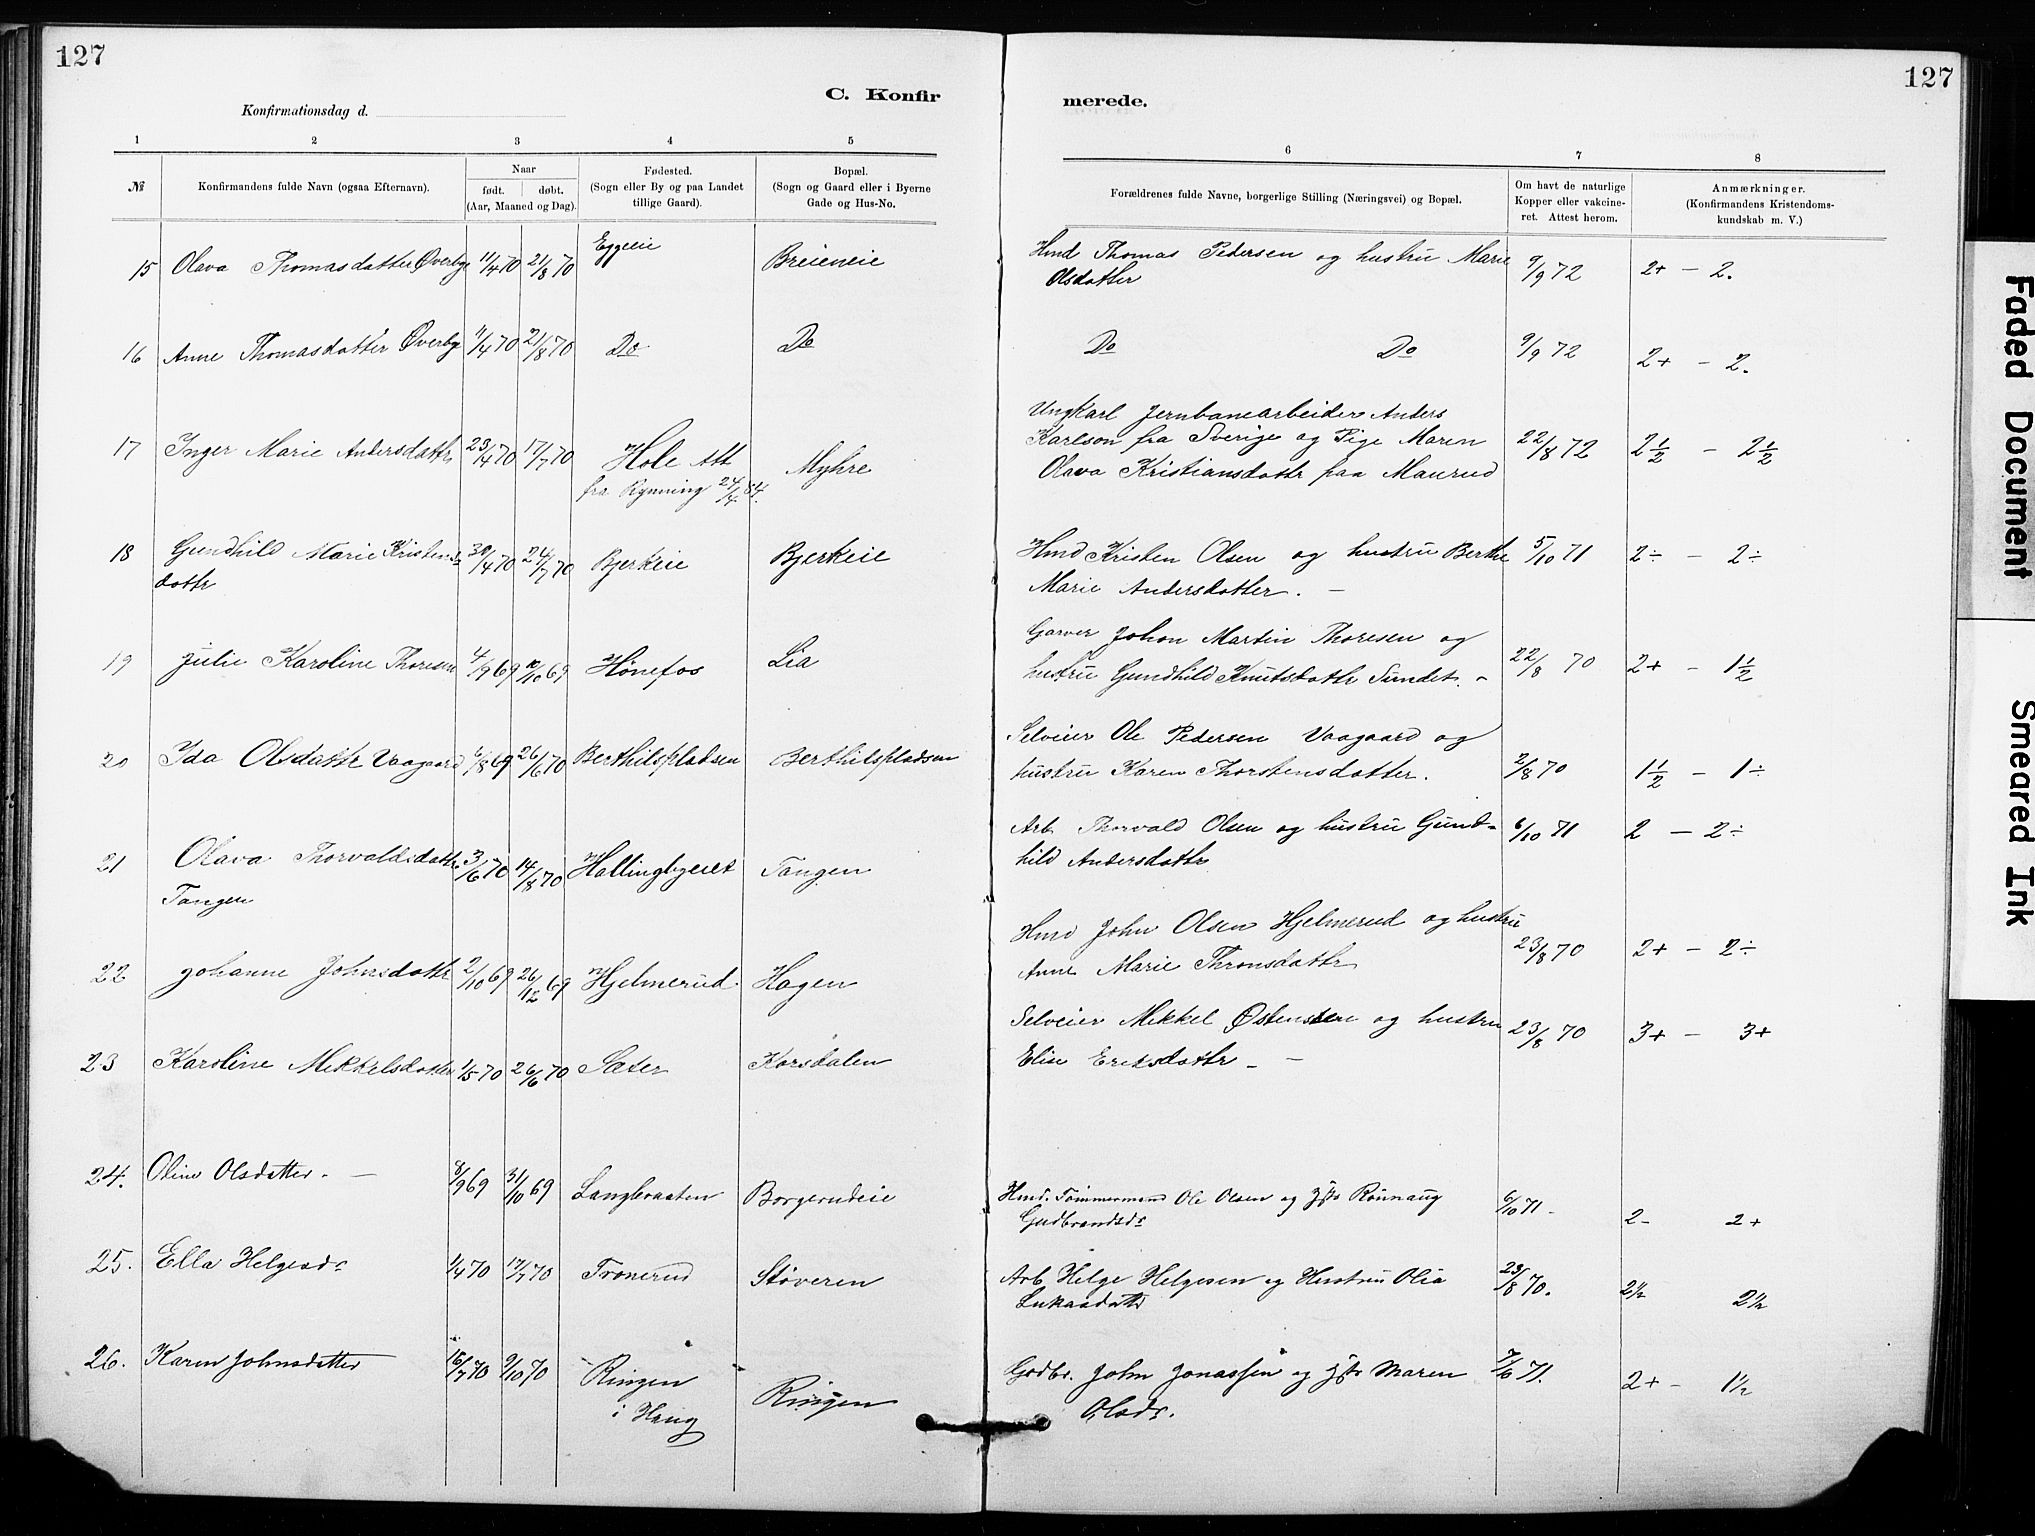 127
127
C. Konfir
merede.
Konfirmationsdag d.
1 2 3 4 5 6 7 8
№ Konfirmandens fulde Navn (ogsaa Efternavn). Naar født. døbt. (Aar, Maaned og Dag). Fødested. (Sogn eller By og paa Landet tillige Gaard). Bopæl. (Sogn og Gaard eller i Byerne Gade og Hus-No. Forældrenes fulde Navne, borgerlige Stilling (Næringsvei) og Bopæl. Om havt de naturlige Kopper eller vakcineret. Attest herom. Anmærkninger. (Konfirmandens Kristendomskundskab m. V.)
15 Olava Thomasdatter Øverby 11/4 70 21/8 70 Eggeeie Breieneie Hmd Thomas Pedersen og hustru Marie 9/9 72 2+ - 2.
Olsdatter
16 Anne Thomasdatter Øverby 11/4 70 21/8 70 Do Do Do Do 9/9 72 2+ - 2.
Ungkarl Jernbanearbeider Anders
17 Inger Marie Andersdattr 23/4 70 17/7 70 Hole Att Myhre Karlson fra Sverige og Pige Maren 22/8 72 2 1/2 - 2 1/2
fra Rynning 24/4 84. Olava Kristiansdattr paa Maurud
18 Gundhild Marie Kristens 30/4 70 24/7 70 Bjerkeie Bjerkeie Hmd Kristen Olsen og hustru Berthe 5/10 71 2÷ - 2÷
dattr Marie Andersdatter. -
Garver Johan Martin Thoresen og
19 Julie Karoline Thoresen 4/9 69 10/10 69 Hønefos Lia hustru Gundhild Knutsdattr Sundet. 22/8 70 2+ - 1 1/2
Selveier Ole Pedersen Vaagaard og
20 Ida Olsdattr Vaagaard 6/8 69 26/6 70 Berthilspladsen Berthilspladsen hustru Karen Thorstensdatter. 2/8 70 1 1/2 - 1÷
Arb. Thorvald Olsen og hustru Gund- 6/10 71 2 - 2÷
21 Olava Thorvaldsdattr 3/6 70 14/8 70 Hallingbyeiet Tangen hild Andersdattr
Tangen
Hmd John Olsen Hjelmerud og hustru
22 Johanne Johnsdattr 2/10 69 26/12 69 Hjelmerud. Hagen Anne Marie Thronsdattr 23/8 70 2+ - 2÷
Selveier Mikkel Østensen og hustru 23/8 70 3+ - 3+
23 Karoline Mikkelsdatter 1/5 70 26/6 70 Sæter Korsdalen Elise Eriksdattr -
24. Oline Olsdatter. - 8/9 69 31/10 69 Langbraaten Borgerudeie Hmd. Tømmermand Ole Olsen og Hst Rønnaug 6/10 71 - 2- 2+
Gudbrandsdr
25. Ella Helgesdr 1/4 70 17/7 70 Tronerud Støveren Arb. Helge Helgesen og Hustru Olia 23/8 70. 2½ 2½
Lukasdattr
26. Karen Johnsdatter 15/7 70 9/10 70 Ringen Ringen Grdbr. John Jonassen og Hst Maren 7/6 71. 2+ - 1½
i Haug Olsdr.
Faded Document
Smeared Ink